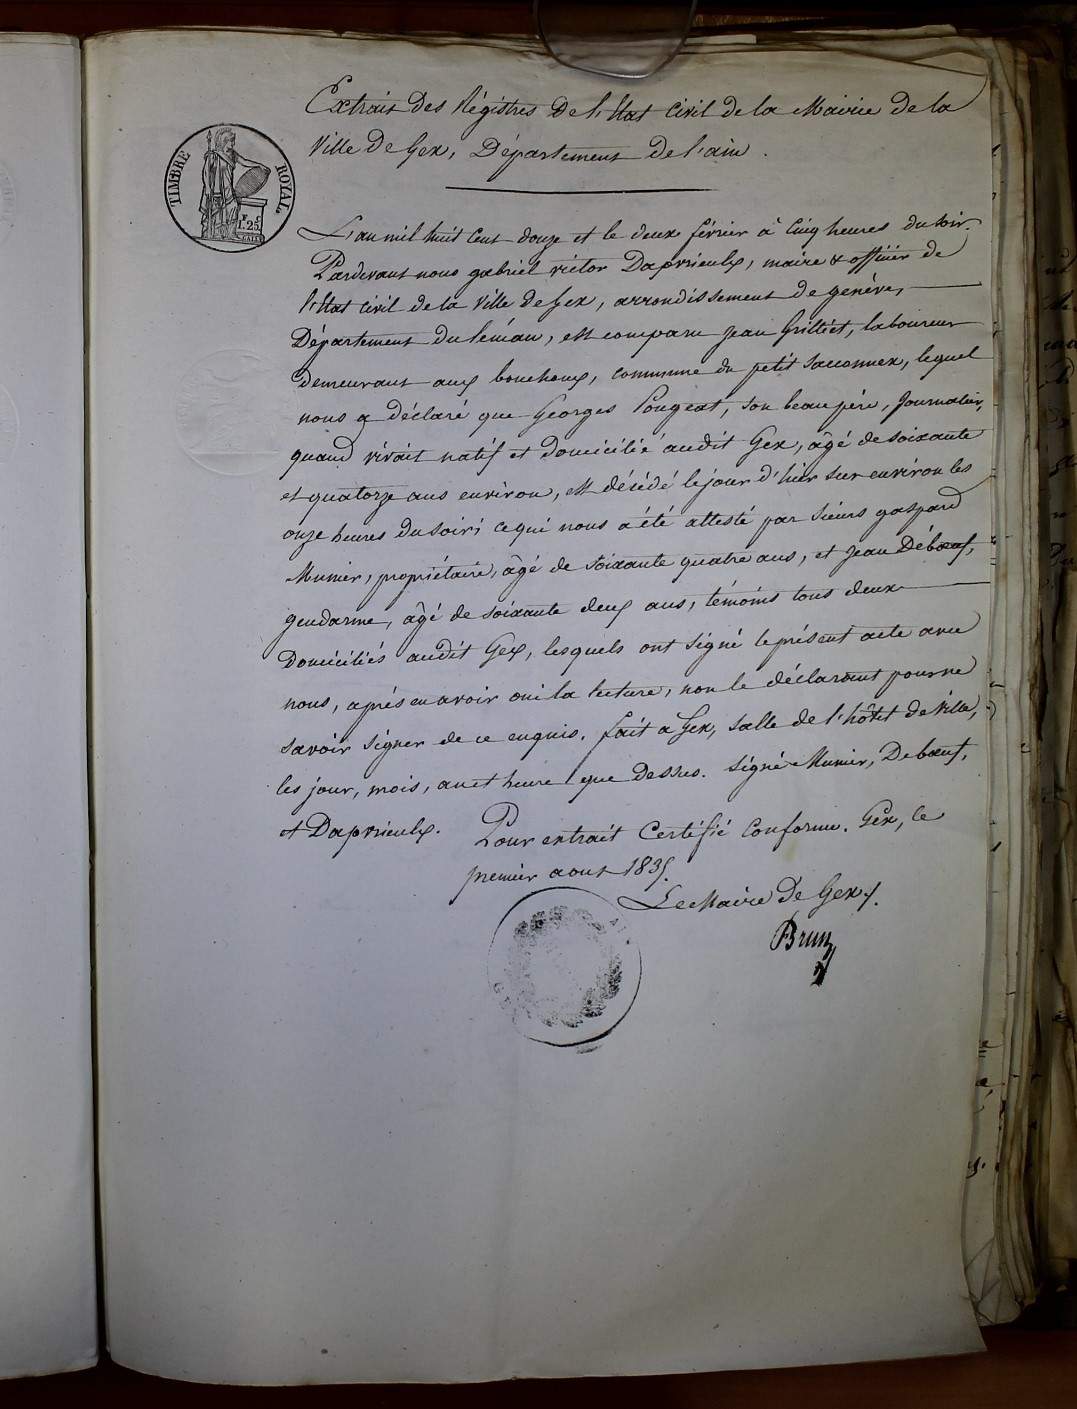 Extrait Des Régistres De l'Etat Civil de la Mairie de la
Ville De Gex, Département de l'ain.
TIMBRE ROYAL
1.25
L'an mil huit Cent douze et le deux février à Cinq heures du soir.
Pardevant nous gabriel victor Daprieulx, maire & officier de
l'Etat civil de la Ville de Gex, arrondissement de genève,
Département du léman, est comparu jean Grilliet, laboureur
demeurant aux bouchoux, commune du petit saconnex, lequel
nous a déclaré que Georges Pougeat, son beau père, Journalier,
quand vivait natif et domicilié audit Gex, âgé de soixante
et quatorze ans environ, est désédé le jour d'hier sur environ les
onze heures du soir; ce qui nous a été attesté par sieurs gaspard
Munier, propriétaire, âgé de soixante quatre ans, et jean Débœuf,
gendarme, âgé de soixante deux ans, témoins tous deux
Domiciliés audit Gex, lesquels ont signé le présent acte avec
nous, aprés en avoir oui la lecture, non le déclarant pour ne
savoir signer de ce enquis. fait à Gex, salle de l'hôtel de ville,
les jour, mois, an et heure que dessus. signé Munier, Debœuf,
et Daprieulx.
Pour extrait Certifié Conforme. Gex, le
premier aout 1835.
Le Maire De Gex
Brun